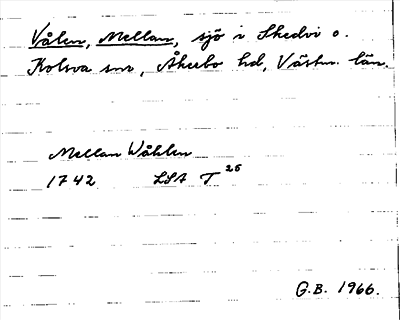 Vålen, Mellan, sjö i Skedvi o.
Kolsva snr, Åkerbo hd, Västm. län.
Mellan Wåhlen
1742 LSA T 26
G.B. 1966.